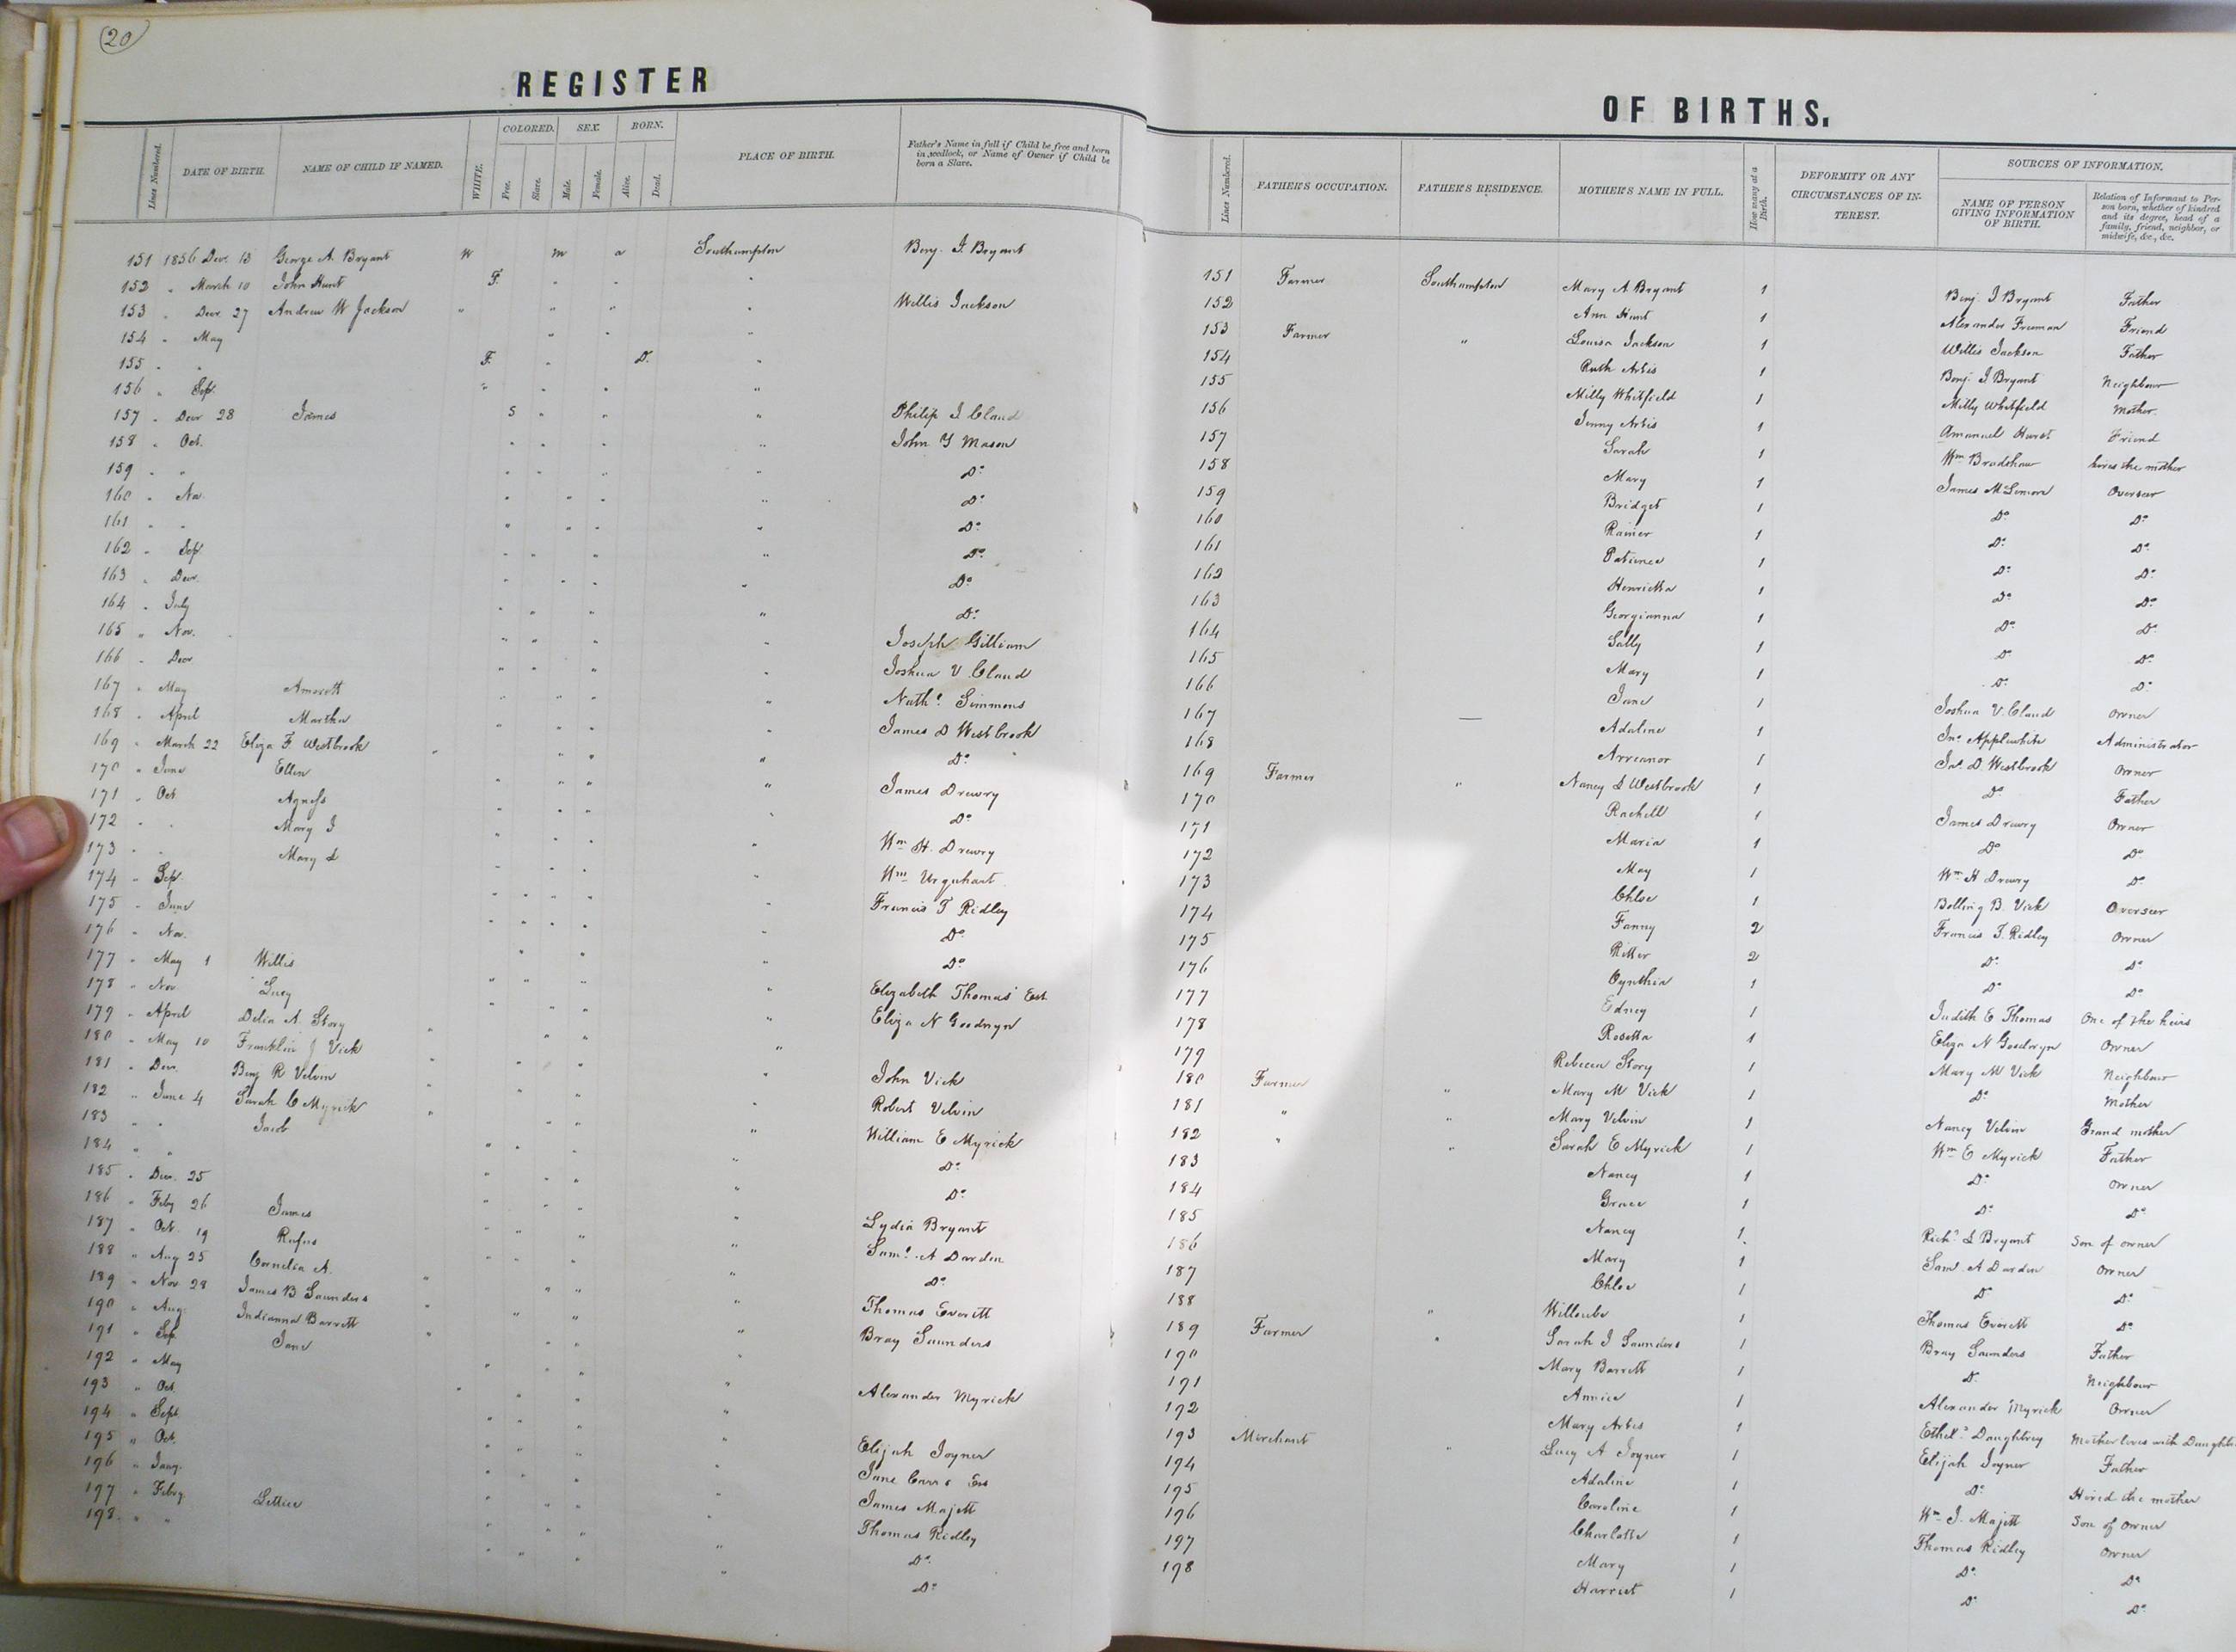 20
REGISTER
OF BIRTHS.
Lines Numbered. DATE OF BIRTH. NAME OF CHILD IF NAMED. WHITE. COLORED. Free. Slave. SEX. Male. Female. BORN. Alive. Dead. PLACE OF BIRTH. Father's Name in full if Child be free and born in wedlock, or Name of Owner if Child be born a Slave.
151 1856 Decr 13 George A. Bryant W m a Southampton Benj. J. Bryant
152 " March 10 John Hunt F. " " "
153 " Decr 27 Andrew W Jackson " " " " Willis Jackson
154 " May " " "
155 " " F. " D. "
156 " Sep. " " " "
157 " Decr 28 James S " " " Philip J. Claud
158 " Oct. " " " " John Y Mason
159 " " " " " " Do
160 " Nov. " " " " Do
161 " " " " " " Do
162 " Sep. " " " " Do
163 " Decr. " " " " Do
164 " July " " " " Do
165 " Nov. " " " " Joseph Gilliam
166 " Decr " " " " Joshua V. Claud
167 " May Amorett " " " " Nathl Simmons
168 " April Martha " " " " James D Westbrook
169 " March 22 Eliza F. Westbrook " " " " Do
170 " June Ellen " " " " James Drewry
171 " Oct. Agness " " " " Do
172 " " Mary J " " " " Wm H. Drewry
173 " " Mary L " " " " Wm Urquhart
174 " Sep. " " " " Francis T Ridley
175 " June " " " " Do
176 " Nov. " " " " Do
177 " May 1 Willis " " " " Elizabeth Thomas' Est.
178 " Nov. Lucy " " " " Eliza N Goodwyn
179 " April Delia A. Story " " " "
180 " May 10 Franklin J Vick " " " " John Vick
181 " Decr. Benj R Velvin " " " " Robert Velvin
182 " June 4 Sarah C Myrick " " " " William E Myrick
183 " " Jacob " " " " Do
184 " " " " " " Do
185 " Decr. 25 " " " " Lydia Bryant
186 " Feby 26 James " " " " Saml A Darden
187 " Oct. 19 Rufus " " " " Do
188 " Aug 25 Cornelia A. " " " " Thomas Everitt
189 " Nov 28 James B Saunders " " " " Bray Saunders
190 " Aug. Indianna Barrett " " " "
191 " Sep. Jane " " " " Alexander Myrick
192 " May " " " "
193 " Oct. " " " " Elijah Joyner
194 " Sept. " " " "
195 " Oct. " " " " James Majett
196 " Jany. " " " " Thomas Ridley
197 " Febry. Lettice " " " " Do
198 " " " " " " Do
Lines Numbered. FATHER'S OCCUPATION. FATHER'S RESIDENCE. MOTHER'S NAME IN FULL. How many at a Birth. DEFORMITY OR ANY CIRCUMSTANCES OF INTEREST. SOURCES OF INFORMATION. NAME OF PERSON GIVING INFORMATION OF BIRTH. Relation of Informant to Person born, whether of kindred and its degree, head of a family, friend, neighbor, or midwife, &c., &c.
151 Farmer Southampton Mary A Bryant 1 Benj. J Bryant Father
152 Ann Hunt 1 Alexander Freeman Friend
153 Farmer " Louisa Jackson 1 Willis Jackson Father
154 Ruth Artis 1 Benj. J Bryant Neighbour
155 Milly Whitfield 1 Milly Whitfield Mother
156 Jenny Artis 1 Friend
157 Sarah 1 Wm Bradshaw hires the mother
158 Mary 1 Overseer
159 Bridget 1 Do Do
160 1 Do Do
161 Patience 1 Do Do
162 Henrietta 1 Do Do
163 Georgianna 1 Do Do
164 Sally 1 Do Do
165 Mary 1 Do Do
166 Jane 1 Joshua V. Claud Owner
167 — Adaline 1 Jno Applewhite Administrator
168 Arreanor 1 Jas. D. Westbrook Owner
169 Farmer " Nancy L Westbrook 1 Do Father
170 Rachell 1 James Drewry Owner
171 Maria 1 Do Do
172 May 1 Wm H Drewry Do
173 Chloe 1 Bolling B. Vick Overseer
174 Fanny 2 Francis T. Ridley Owner
175 Ritter 2 Do Do
176 Cynthia 1 Do Do
177 Edney 1 Judith E Thomas One of the heirs
178 Rosetta 1 Eliza N Goodwyn Owner
179 Rebecca Story 1 Mary M Vick Neighbour
180 Farmer " Mary M Vick 1 Do Mother
181 " " Mary Velvin 1 Nancy Velvin Grand mother
182 " " Sarah E Myrick 1 Wm E Myrick Father
183 Nancy 1 Do Owner
184 Grace 1 Do Do
185 Nancy 1 Richd L Bryant Son of owner
186 Mary 1 Saml A Darden Owner
187 Chloe 1 Do Do
188 " 1 Thomas Everett Do
189 Farmer " Sarah J Saunders 1 Bray Saunders Father
190 Mary Barrett 1 Do Neighbour
191 Annica 1 Alexander Myrick Owner
192 Mary Artis 1 Daughtrey Mother lives with
193 Merchant " Lucy A Joyner 1 Elijah Joyner Father
194 Adaline 1 Do Hired the mother
195 Caroline 1 Wm J. Majett Son of Owner
196 Charlotte 1 Thomas Ridley Owner
197 Mary 1 Do Do
198 Harriet 1 Do Do